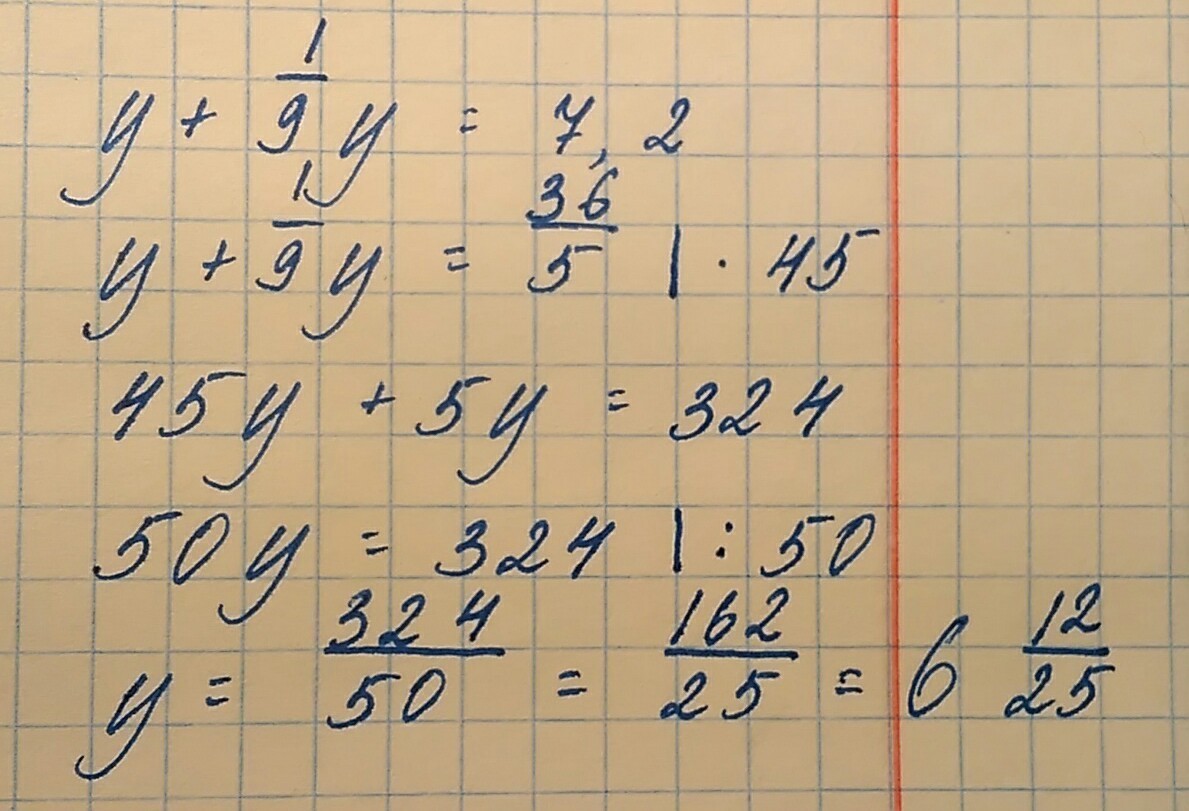 y + 1/9 y = 7,2
y + 1/9 y = 36/5 | · 45
45y + 5y = 324
50y = 324 | : 50
y = 324/50 = 162/25 = 6 12/25